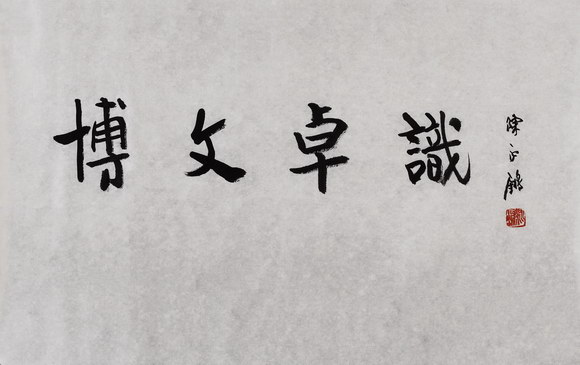 博文卓識
陳正鵬